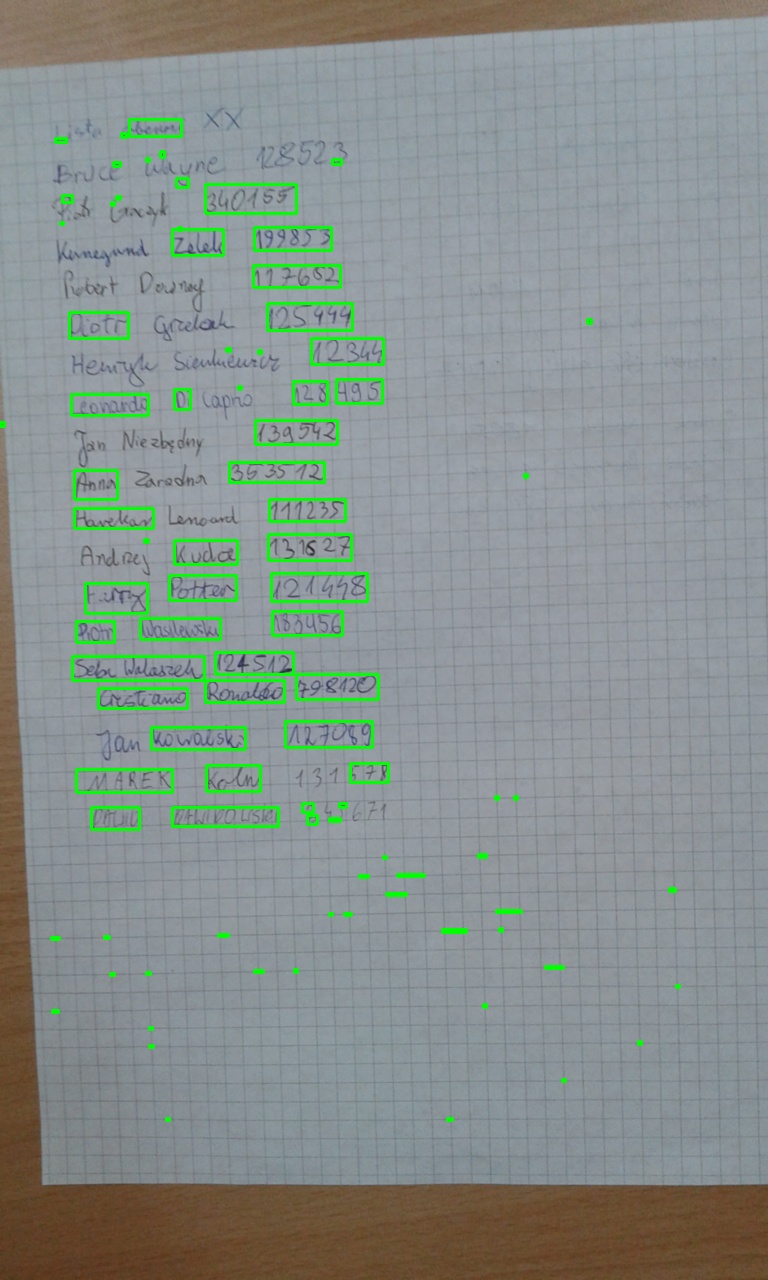 Lista XX
Bruce Wayne 128523
Piotr Graczyk 340155
Kunegund Zelek 199853
Robert Downey 117652
Piotr Grzelak 125444
Henryk Sienkiewicz 12344
Leonardo Di Caprio 128495
Jan Niezbędny 139542
Anna Zaradna 353512
Havekar Lenoard 111235
Andrzej Kudca 131627
Harry Potter 121448
Piotr Wasilewski 183456
Seba Walaszek 124512
Cristiano Ronaldo 798120
Jan Kowalski 127089
MAREK Koln 131578
DAWID DAWIDOWSKI